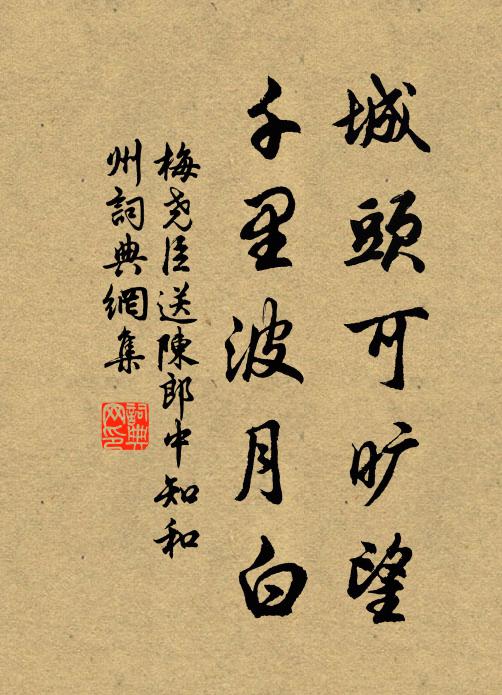 城頭可旷望
千里波月白
梅尧臣送陳郎中知和
州詞典網集
詞典网印